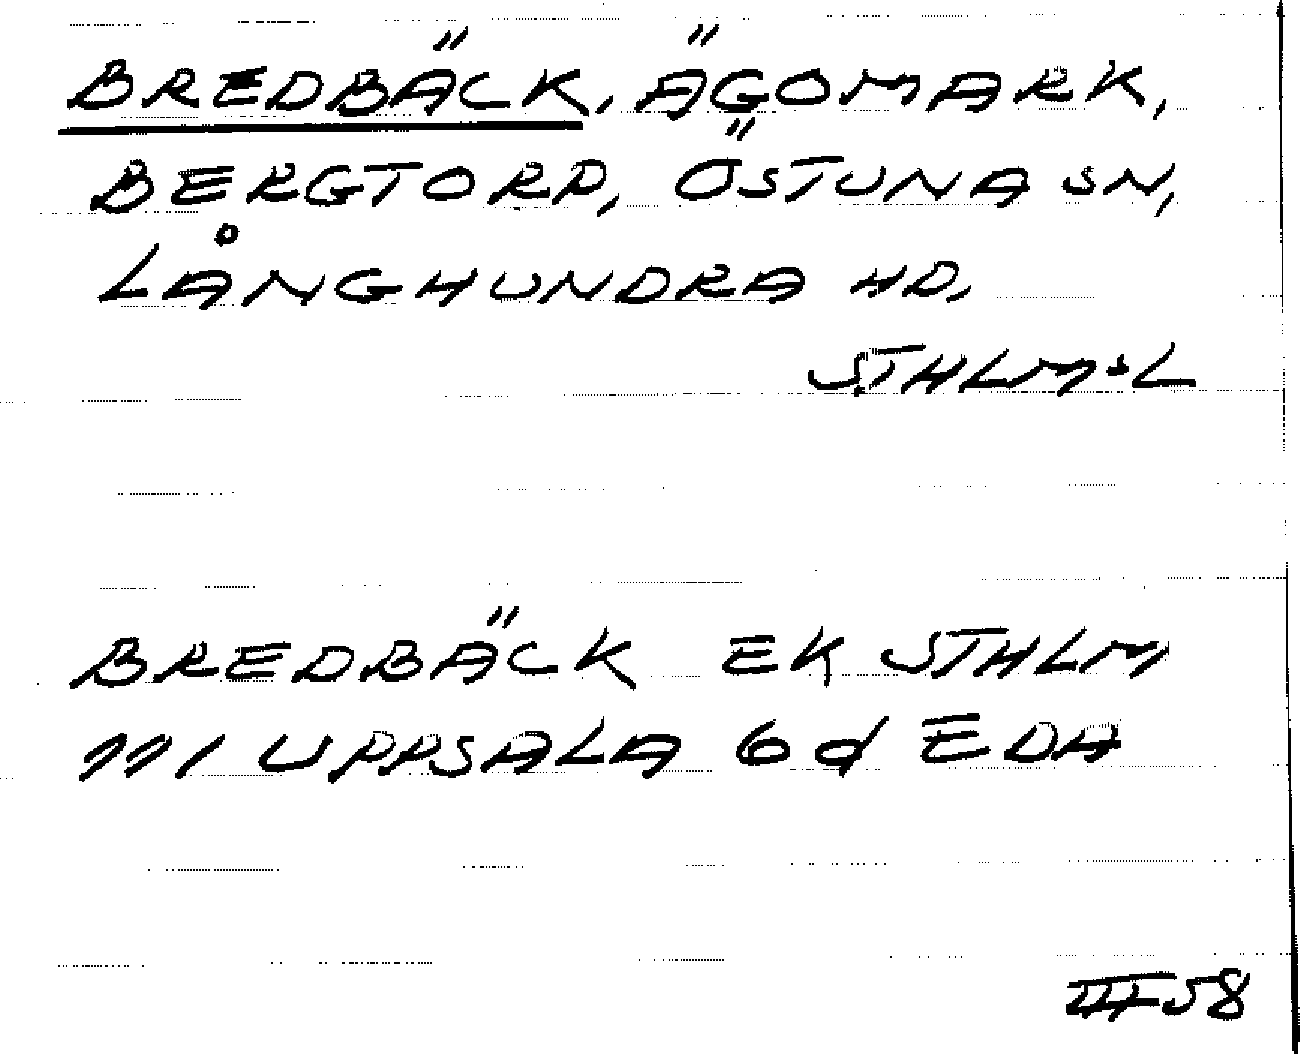 BREDBÄCK, ÄGOMARK,
BERGTORP, ÖSTUNA SN,
LÅNGHUNDRA HD,
STHLMSL
BREDBÄCK EK STHLM
111 UPPSALA 6 d EDA
58